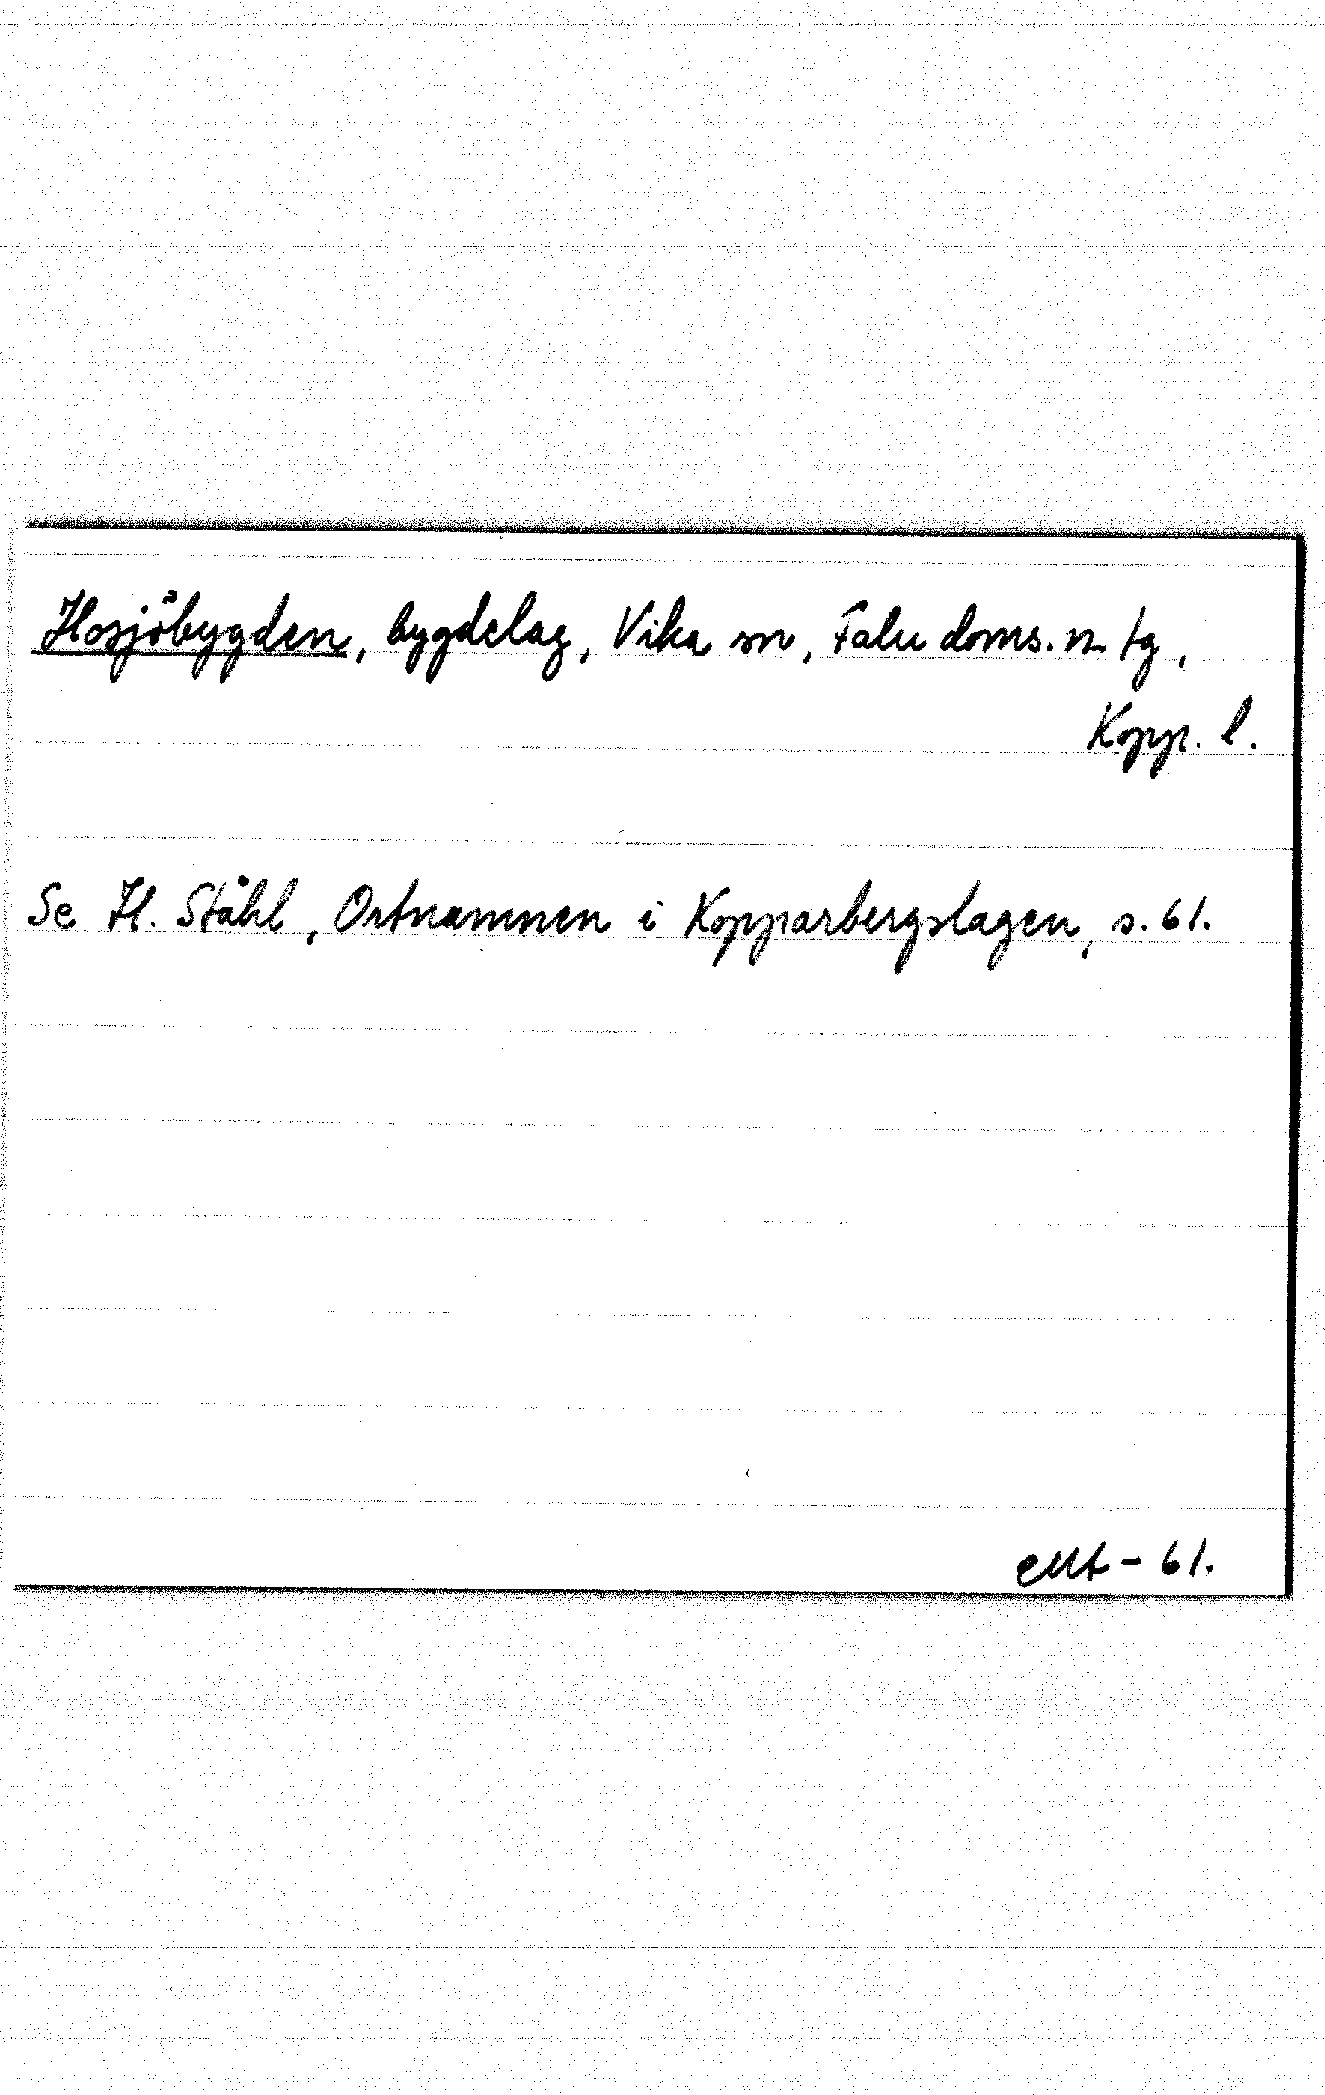 Hosjöbygden, bygdelag, Vika sn, Falu doms. n. tg,
Kopp. l.
Se H. Ståhl, Ortnamnen i Kopparbergslagen, s. 61.
- 61.